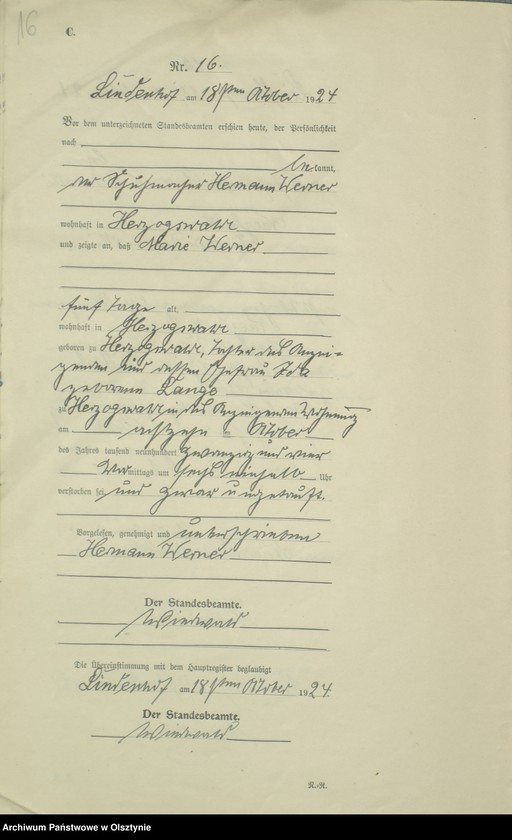 16
C.
Nr. 16.
Lindenhof am 18ten Oktober 1924
Vor dem unterzeichneten Standesbeamten erschien heute, der Persönlichkeit
nach
bekannt,
der Schuhmacher Hermann Werner
wohnhaft in Herzogswalde
und zeigte an, daß Marie Werner
fünf Tage alt
wohnhaft in Herzogswalde
geboren zu Herzogswalde, Tochter des Anzei-
genden und dessen Ehefrau Ida
geborene Lange
zu Herzogswalde in des Anzeigenden Wohnung
am achtzehn ten Oktober
des Jahres tausend neunhundert zwanzig und vier
Vormittags um sechs einhalb Uhr
verstorben sei und zwar ungetauft.
Vorgelesen, genehmigt und unterschrieben
Hermann Werner
Der Standesbeamte.
Die Übereinstimmung mit dem Hauptregister beglaubigt
Lindenhof am 18ten Oktober 1924
Der Standesbeamte.
N.-R.
Archiwum Państwowe w Olsztynie